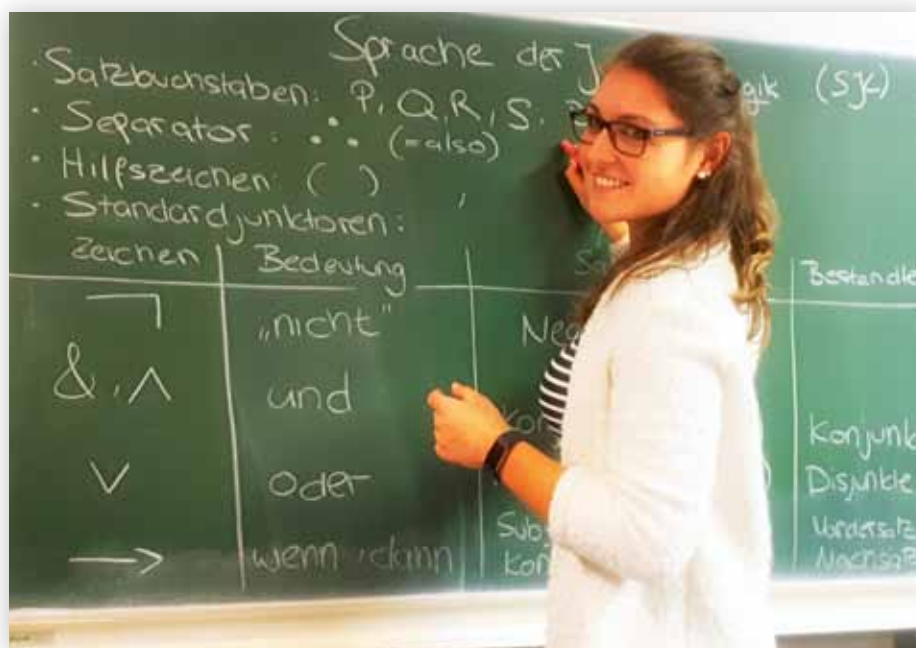 Sprache der J gik (SJK)
· Satzbuchstaben: P, Q, R, S,
· Separator: ∴ (=also)
· Hilfszeichen ( ) ,
· Standardjunktoren:
Zeichen Bedeutung Bestandte
¬ „nicht" Neg
&, ∧ und Kon Konjunk
∨ oder Disjunkte
→ wenn, dann Sub Vordersatz
Kon Nachsatz